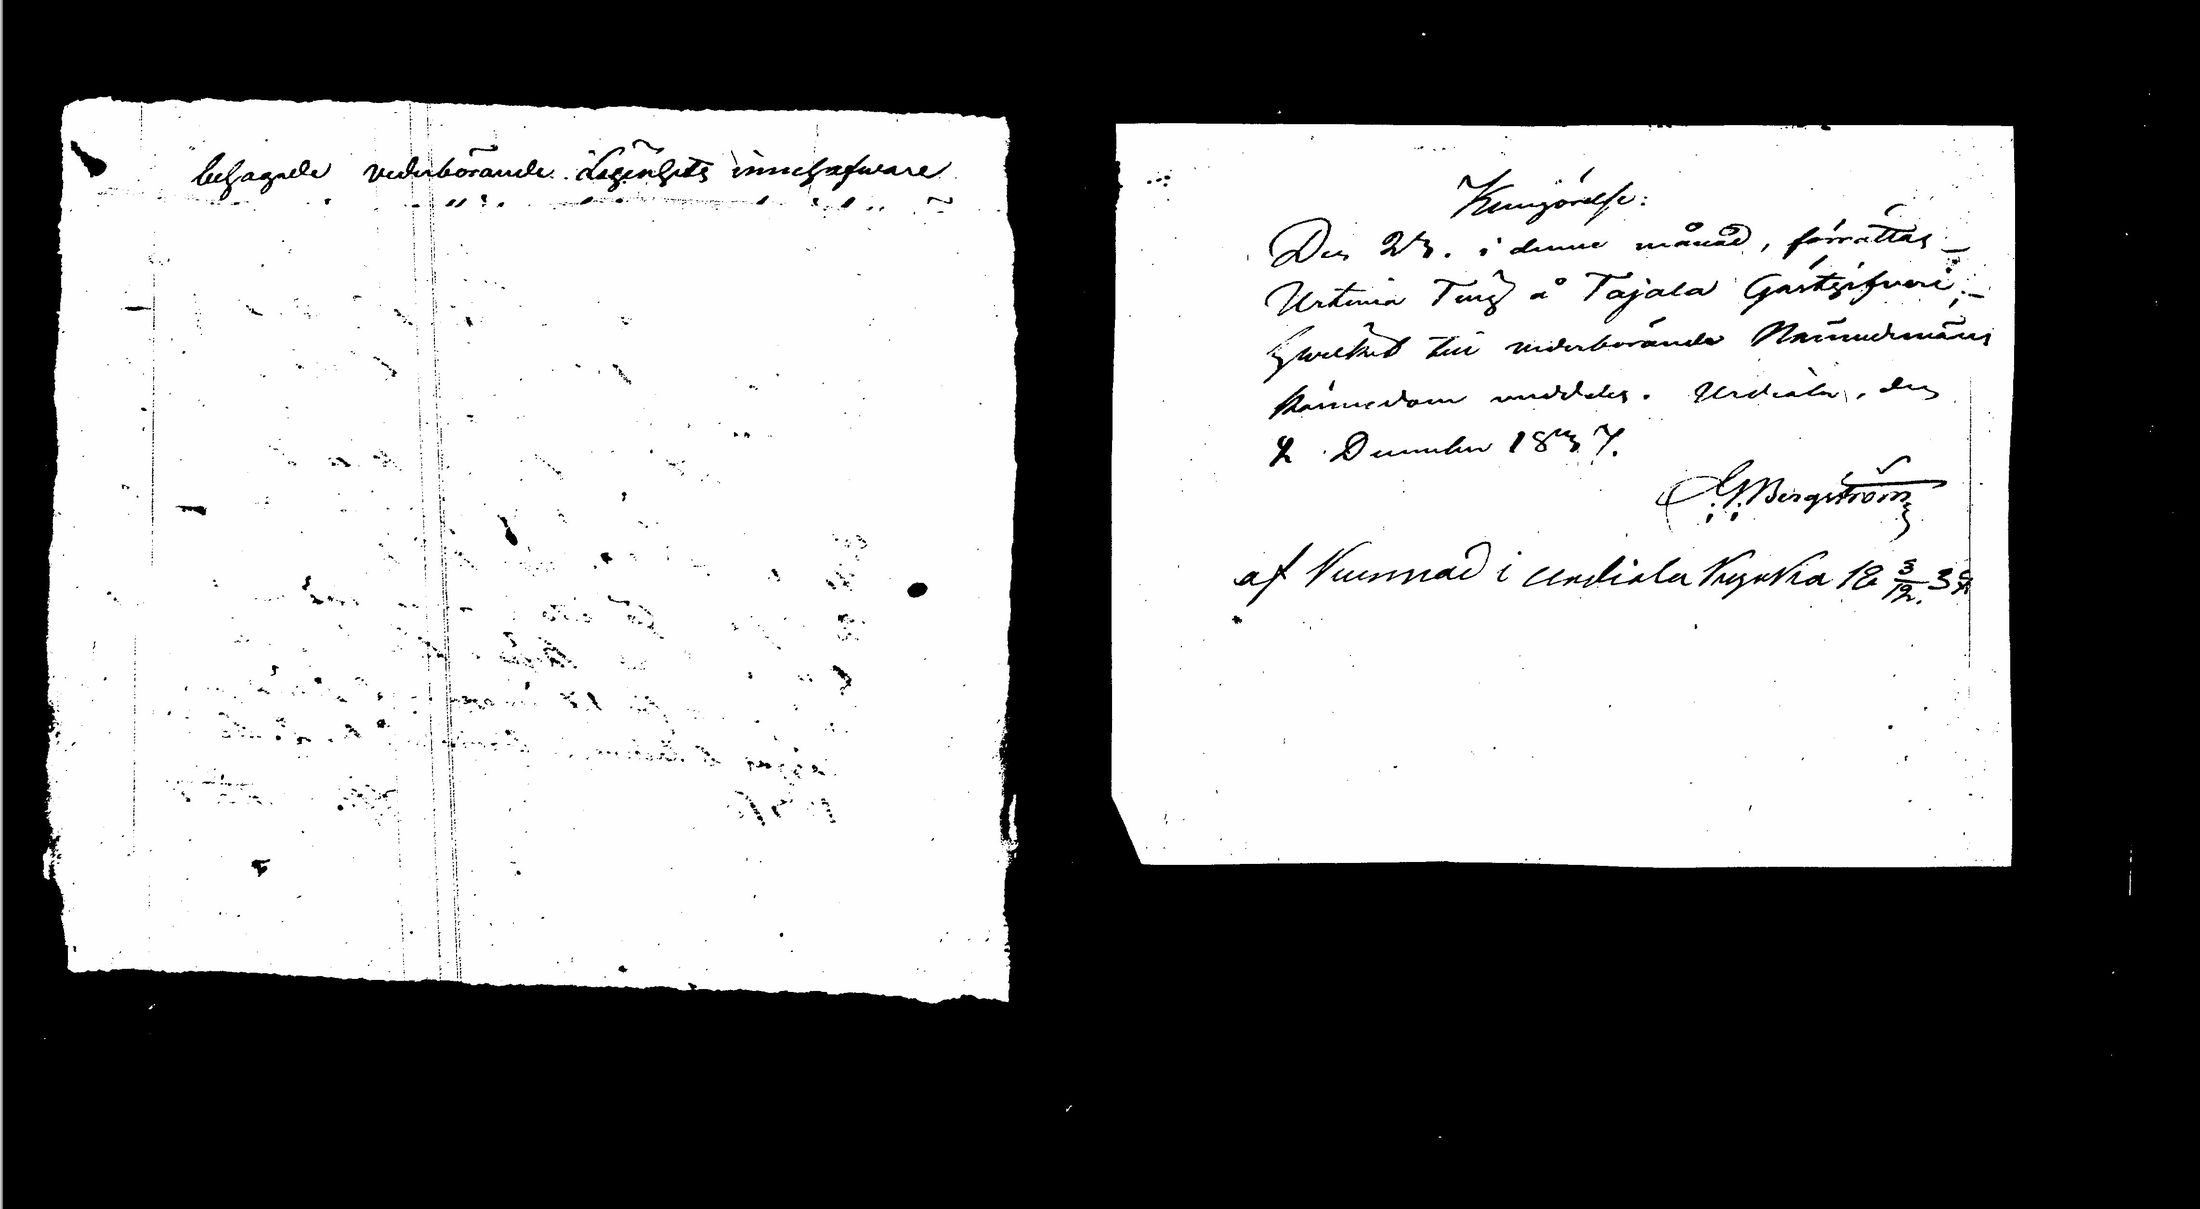 behagade vederbörande Lägenhets innehafware
Kungörelse:
Den 23. i denne månad, förrättas
Urtima Ting å Tajala Gästgifveri,
hwilket till vederbörande Nämndemäns
kännedom meddeles. Urdiala, den
2 December 1837.
Bergström
af Kunnad i urdiala Kyrka 18 3/12 37